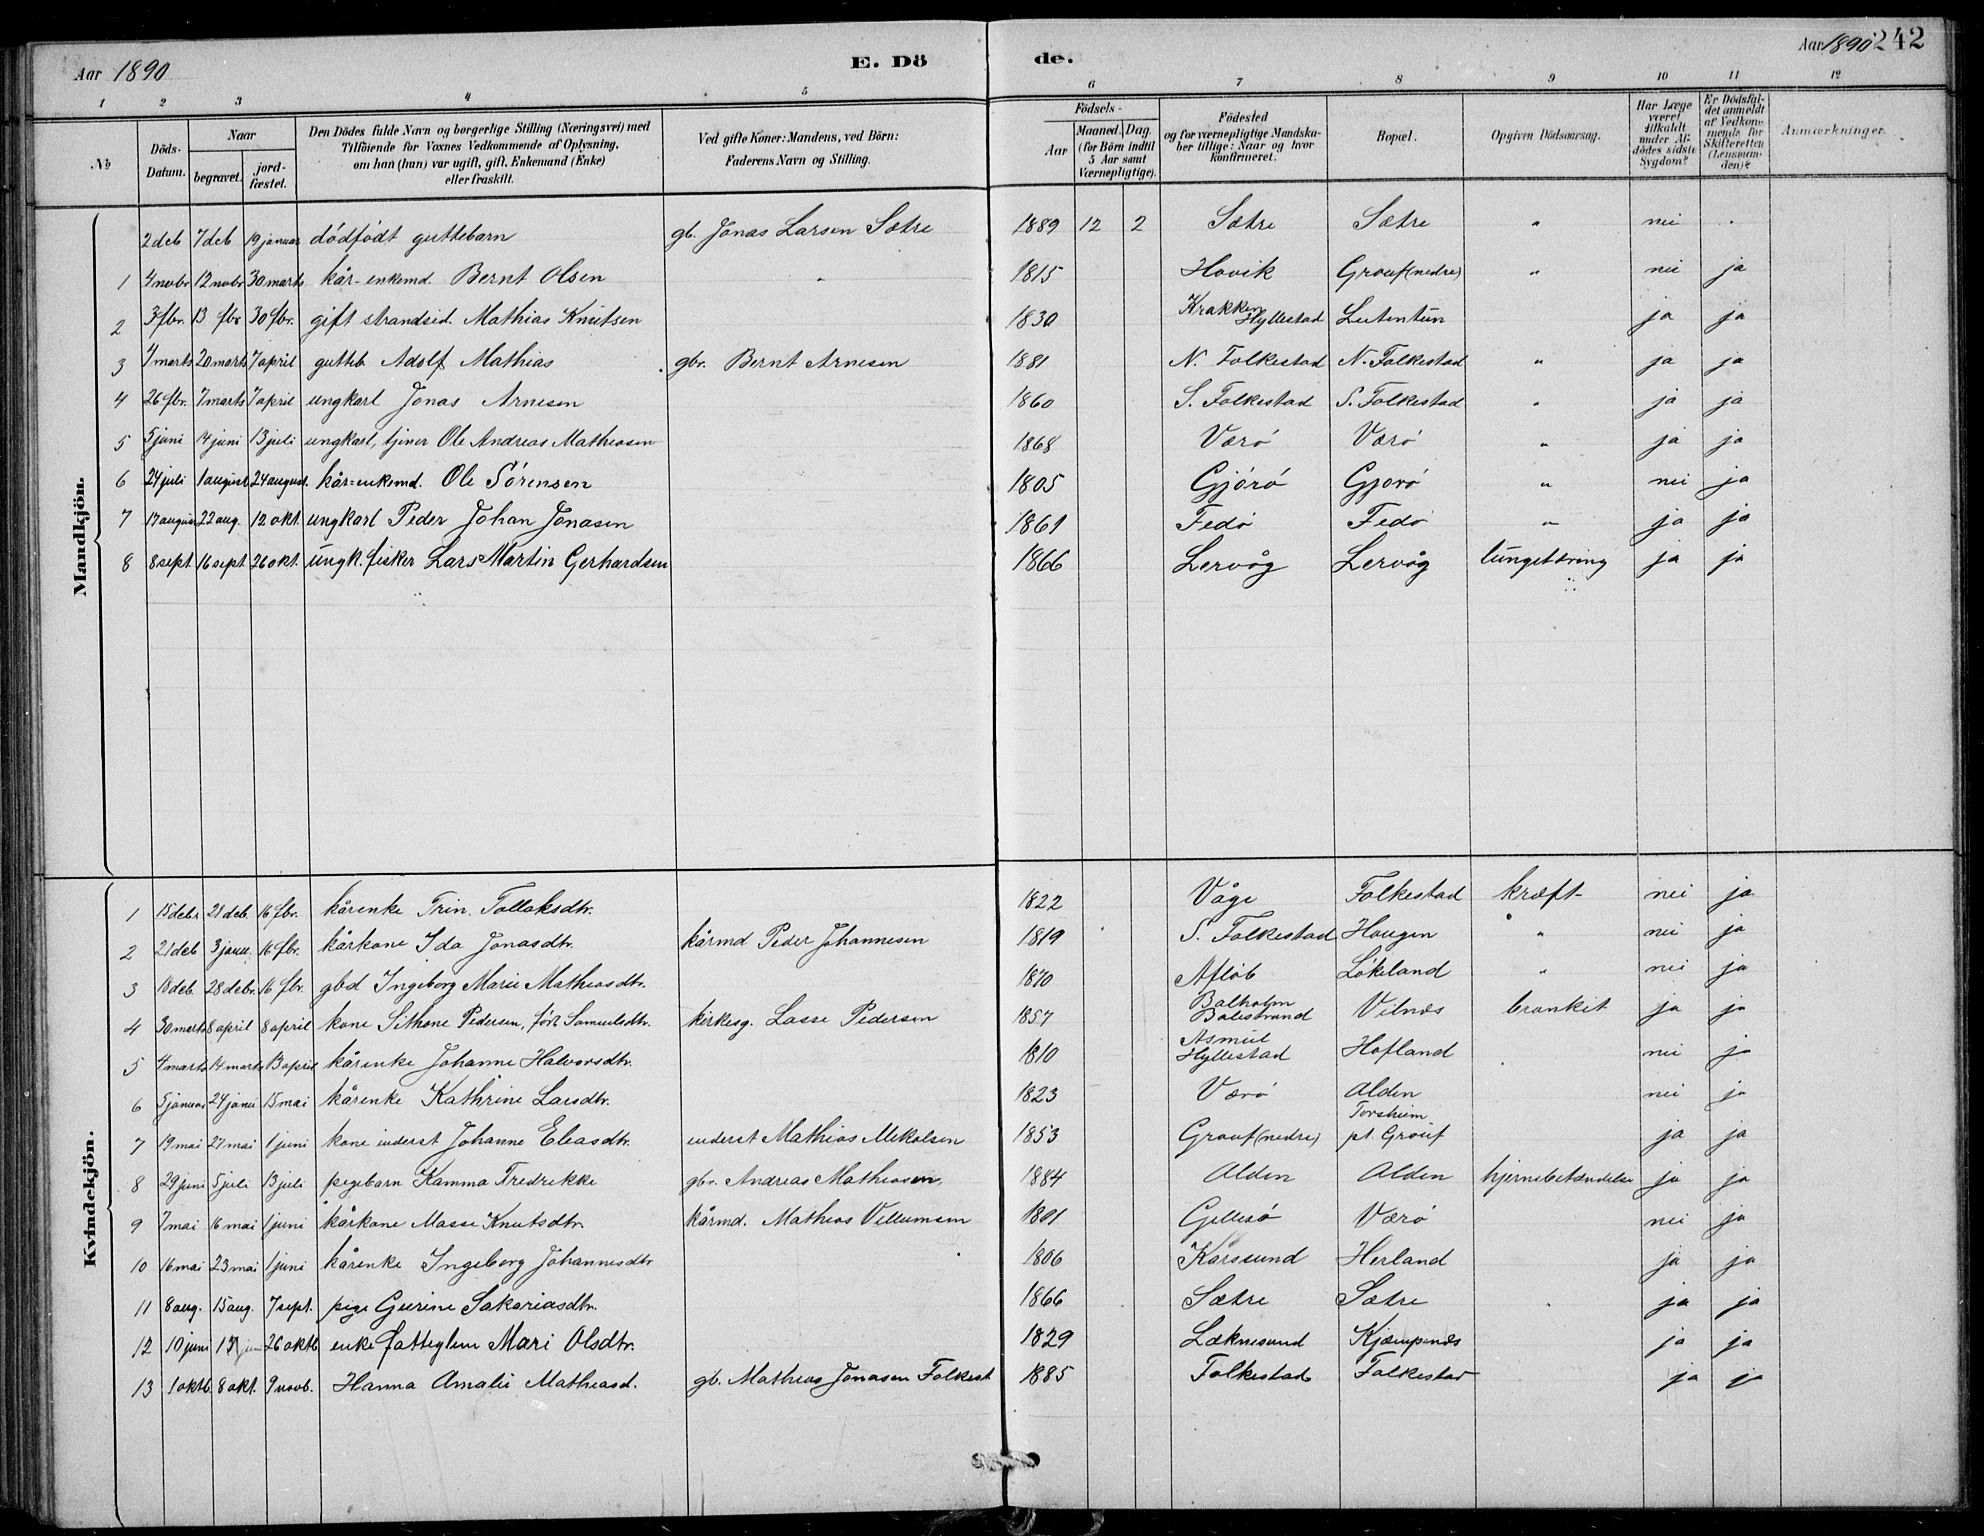 Aar 1890 E. Döde. Aar 1890 242
1 2 3 4 5 6 7 8 9 10 11 12
№ Döds-Datum. Naar begravet. jordfæstet. Den Dödes fulde Navn og borgerlige Stilling (Næringsvei) med Tilföiende for Voxnes Vedkommende af Oplysning, om han (hun) var ugift, gift, Enkemand (Enke) eller fraskilt. Ved gifte Koner: Mandens, ved Börn: Faderens Navn og Stilling. Födsels- Aar Maaned. Dag. (for Börn indtil 5 Aar samt Værnepligtige). Födested og for værnepligtige Mandskaber tillige: Naar og hvor konfirmeret. Bopæl. Opgiven Dödsaarsag. Har Læge været tilkaldt under Afdödes sidste Sygdom? Er Dödsfaldet anmeldt af Vedkommende for Skifteretten (Lensmanden)? Anmærkninger.
Mandkjön.
2 deb 7 deb 19 januar dödfödt guttebarn gb. Jonas Larsen Sætre 1889 12 2 Sætre Sætre " nei
1 4 novbr 12 novbr 30 marts kår-enkemd. Bernt Olsen " 1815 Hovik Grouf (nedre) " nei ja
2 3 fbr. 13 fbr 30 fbr. gift strandsid. Mathias Knutsen 1830 Krakken Hyllestad Leutentun ja ja
3 4 marts 20 marts 7 april gutteb Adolf Mathias gbr. Bernt Arnesen 1881 N. Folkestad N. Folkestad " ja ja
4 26 fbr. 7 marts 7 april ungkarl Jonas Arnesen 1860 S. Folkestad S. Folkestad " ja ja
5 5 juni 14 juni 13 juli ungkarl, tjener Ole Andreas Mathiasen 1868 Værö Værö " ja ja
6 24 juli 1 august 24 august. kår-enkemd. Ole Sörensen 1805 Gjörö Gjörö " nei ja
7 17 august 22 aug. 12 okt. ungkarl Peder Johan Jonasen 1861 Fedö Fedö " ja ja
8 8 sept 16 sept 26 okt. ungk. fisker Lars Martin Gerhardsen 1866 Lervåg Lervåg lungetæring ja ja
Kvindekjön.
1 15 debr 21 deb. 16 fbr. kårenke Trin. Tollaksdtr. 1822 Våge Folkestad kræft nei ja
2 21 deb 3 janu. 16 fbr. kårkone Ida Jonasdtr. kårmd Peder Johannesen 1819 S. Folkestad Hougen " nei ja
3 18 deb 28 debr. 16 fbr. gbd Ingeborg Marie Mathiasdtr. 1870 Aflöb Lökeland " nei ja
4 30 marts 8 april 8 april kone Sithone Pedersen, född Samuelsdtr. kirkesg. Lasse Pedersen 1857 Balholm Balestrand Vilnæs bronkit ja ja
5 4 marts 14 marts 13 april kårenke Johanne Halvorsdtr. 1810 Asmul Hyllestad Hofland nei ja
6 5 januar 24 janu 15 mai kårenke Kathrine Larsdtr. 1823 Værö Alden nei ja
7 19 mai 27 mai 1 juni kone inderst Johanne Eliasdtr. inderst Mathias Mikalsen 1853 Grouf (nedre) Torsheim pt. Grouf ja ja
8 29 juni 5 juli 13 juli pigebarn Kamma Fredrekke gbr. Andreas Mathiasen 1884 Alden Alden hjernebetændelse ja ja
9 7 mai 16 mai 1 juni kårkone Masse Knutsdtr. kårmd. Mathias Villumsen 1801 Gillesö Værö nei ja
10 16 mai 23 mai 1 juni kårenke Ingeborg Johannesdtr 1806 Karssund Herland ja ja
11 8 aug. 15 aug. 7 sept. pige Gurine Sakariasdtr. 1866 Sætre Sætre ja ja
12 10 juni juni 26 oktb enke fatteglem Mari Olsdtr. 1829 Læknesund Kjæmpenæs ja ja
13 1 oktb 8 okt. 9 novb. Hanna Amalie Mathiasd. gb. Mathias Jonasen Folkest 1885 Folkestad Folkestad ja ja